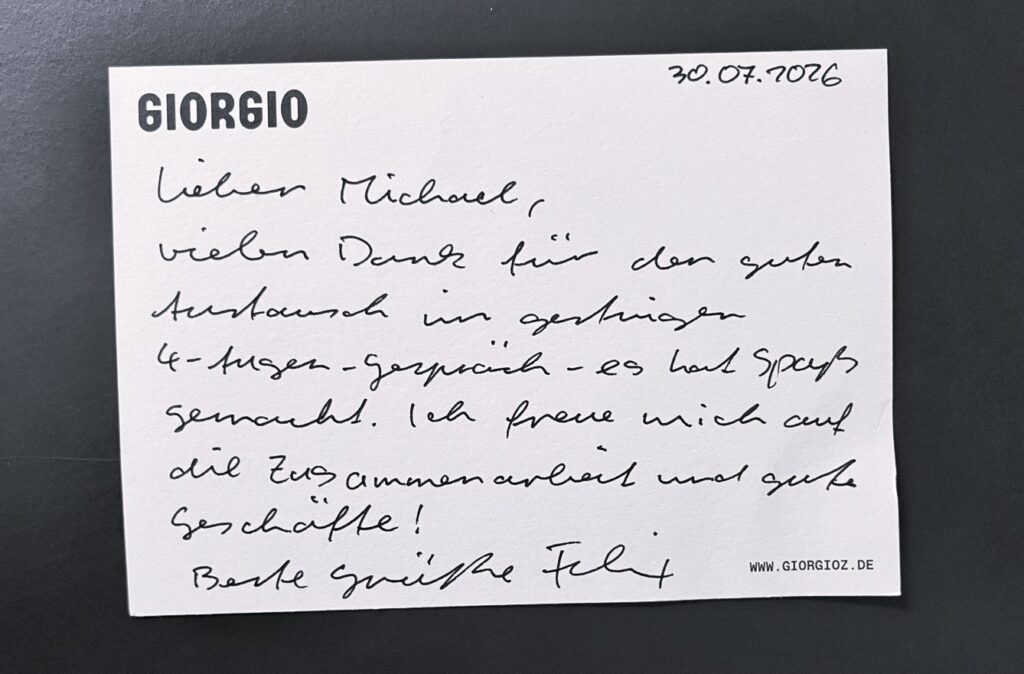 30.07.2026
GIORGIO
Lieber Michael,
vielen Dank für den guten
Austausch im gestrigen
4-Augen-Gespräch - es hat Spaß
gemacht. Ich freue mich auf
die Zusammenarbeit und gute
Geschäfte!
Beste Grüße Felix
WWW.GIORGIOZ.DE